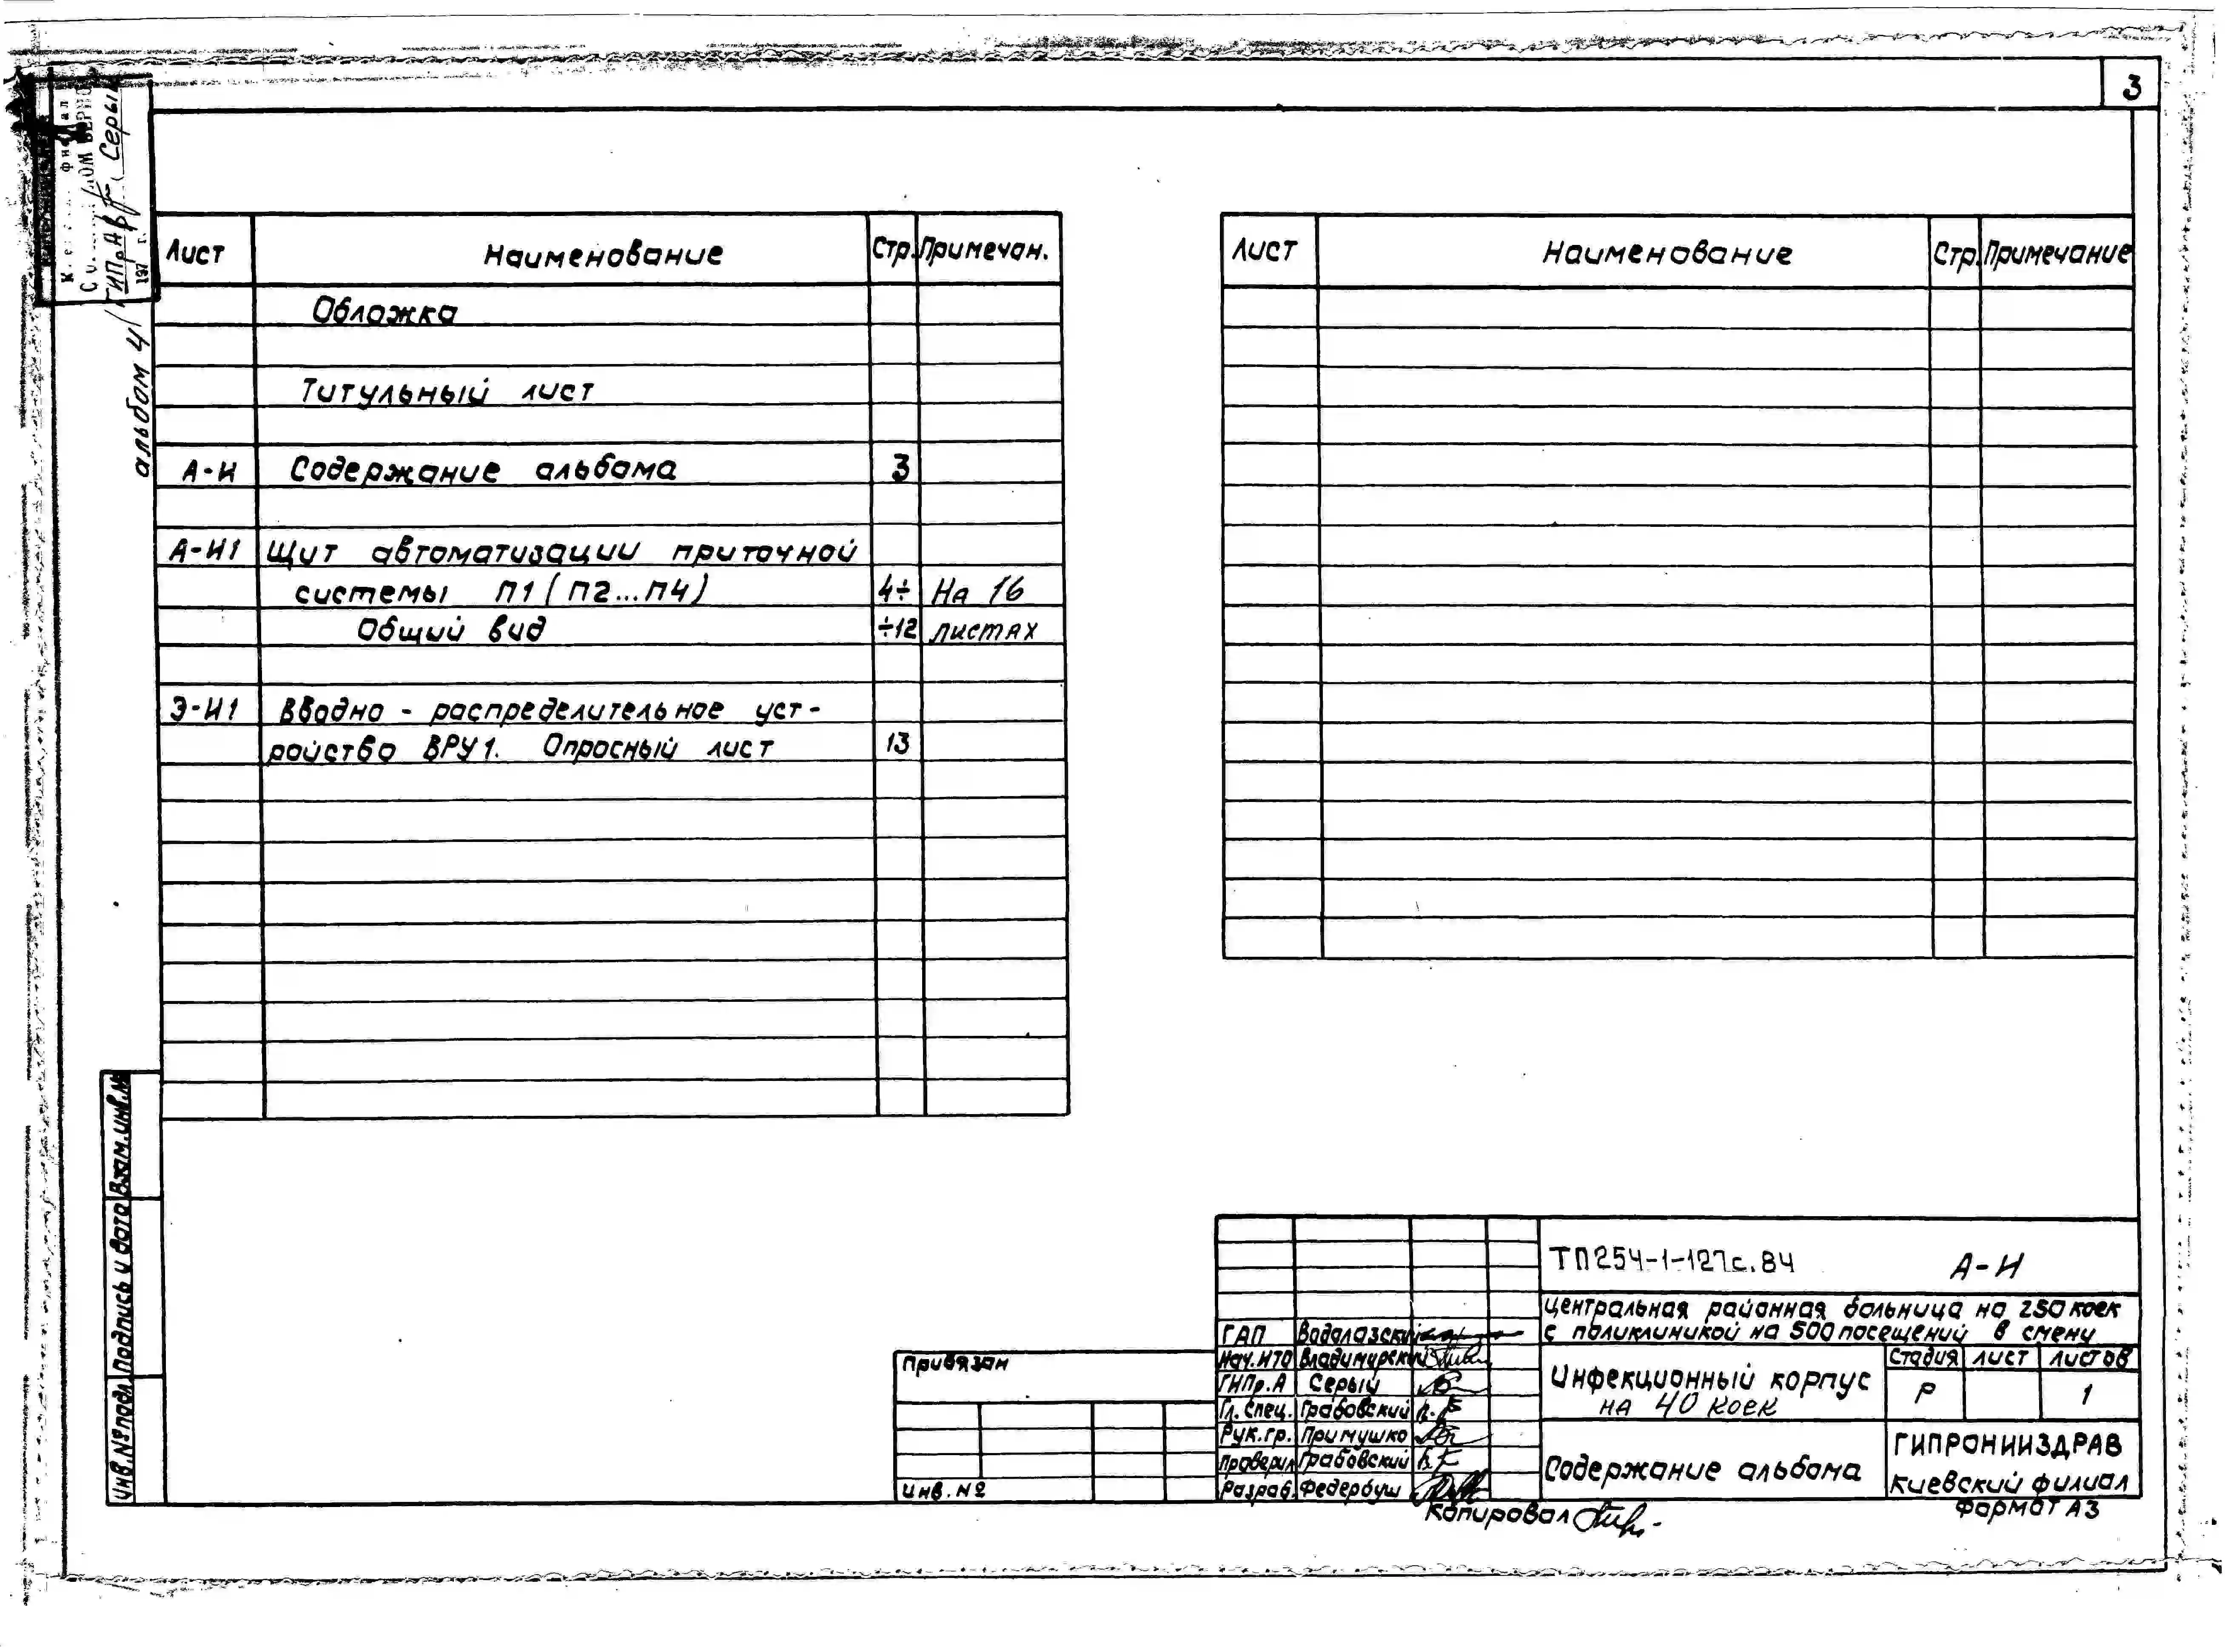 3
альбом 4
ГИПр.А Серый
Лист Наименование Стр. Примечан.
Обложка
Титульный лист
А-И Содержание альбома 3
А-И1 Щит автоматизации приточной
системы П1 (П2...П4) 4÷ На 16
Общий вид ÷12 листах
Э-И1 Вводно - распределительное уст-
ройство ВРУ1. Опросный лист 13
Лист Наименование Стр. Примечание
Взам.инв.№
Подпись и дата
Инв.№ подл
Привязан
Инв. №
ТП254-1-127с.84 А-И
Центральная районная больница на 250 коек
с поликлиникой на 500 посещений в смену
ГАП Водолазский
Нач.ИТО Владимирский
ГИПр.А Серый
Гл. Спец. Грабовский
Рук.гр. Примушко
Проверил Грабовский
Разраб. Федербуш
Инфекционный корпус
на 40 коек
Стадия Лист Листов
Р 1
Содержание альбома
ГИПРОНИИЗДРАВ
Киевский филиал
Копировал
Формат А3